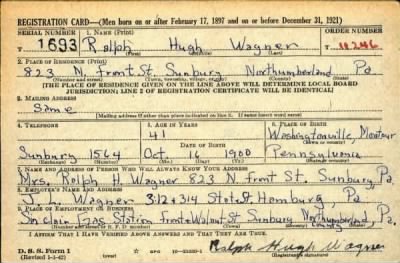 REGISTRATION CARD—(Men born on or after February 17, 1897 and on or before December 31, 1921)
SERIAL NUMBER 1. NAME (Print) ORDER NUMBER
1693 Ralph Hugh Wagner 10246
2. PLACE OF RESIDENCE (Print)
823 N. Front St. Sunbury Northumberland Pa
[THE PLACE OF RESIDENCE GIVEN ON THE LINE ABOVE WILL DETERMINE LOCAL BOARD
JURISDICTION; LINE 2 OF REGISTRATION CERTIFICATE WILL BE IDENTICAL]
3. MAILING ADDRESS
Same
[Mailing address if other than place indicated on line 2. If same insert word same]
4. TELEPHONE 5. AGE IN YEARS 6. PLACE OF BIRTH
41 Washingtonville, Montour
DATE OF BIRTH
Sunbury 1564 Oct. 16 1900 Pennsylvania
7. NAME AND ADDRESS OF PERSON WHO WILL ALWAYS KNOW YOUR ADDRESS
Mrs. Ralph H. Wagner 823 N. Front St., Sunbury, Pa.
8. EMPLOYER'S NAME AND ADDRESS
J. L. Wagner 312 & 314 State St. Hamburg, Pa
9. PLACE OF EMPLOYMENT OR BUSINESS
Sinclair Gas Station Front & Walnut St. Sunbury Northumberland County Pa.
I AFFIRM THAT I HAVE VERIFIED ABOVE ANSWERS AND THAT THEY ARE TRUE.
D. S. S. Form 1
(Revised 1-1-42) (over)
Ralph Hugh Wagner